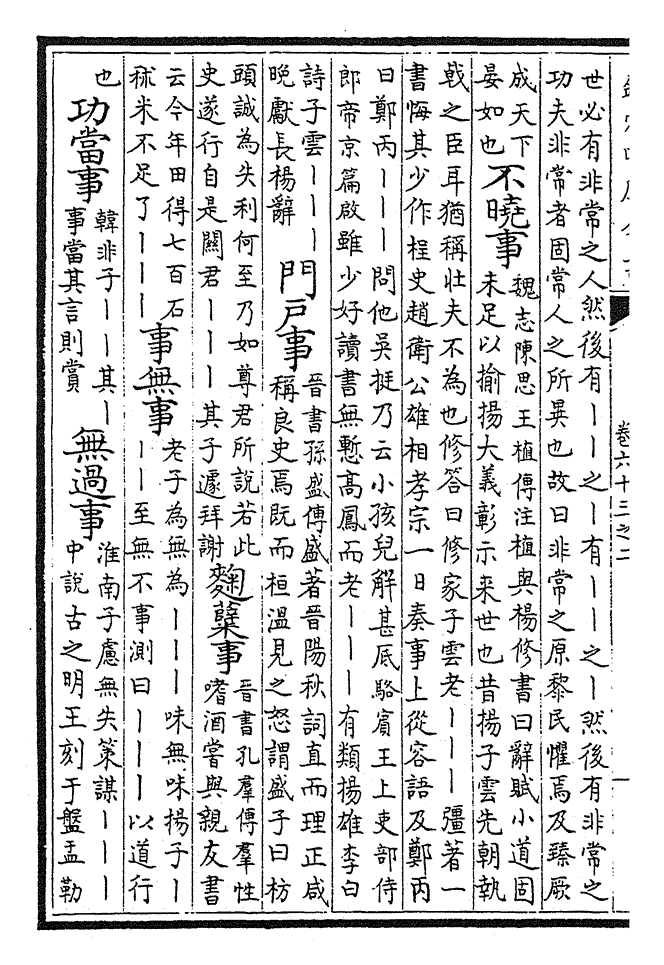 卷六十三之二
世必有非常之人然後有丨丨之丨有丨丨之丨然後有非常之
功夫非常者固常人之所異也故曰非常之原黎民懼焉及臻厥
成天下
晏如也
不曉事
魏志陳思王植傳注植與楊修書曰辭賦小道固
未足以揄揚大義彰示来世也昔揚子雲先朝執
戟之臣耳猶稱壯夫不為也修答曰修家子雲老丨丨丨彊著一
書悔其少作桯史趙衛公雄相孝宗一日奏事上從容語及鄭丙
曰鄭丙丨丨丨問他吳挺乃云小孩兒解甚厎駱賓王上吏部侍
郎帝京篇啟雖少好讀書無慙高鳳而老丨丨丨有類揚雄李白
詩子雲丨丨丨
晚獻長楊辭
門戸事
晉書孫盛傳盛著晉陽秋詞直而理正咸
稱良史焉既而桓溫見之怒謂盛子曰枋
頭誠為失利何至乃如尊君所說若此
史遂行自是關君丨丨丨其子遽拜謝
麴櫱事
晉書孔羣傳羣性
嗜酒嘗與親友書
云今年田得七百石
秫米不足了丨丨丨
事無事
老子為無為丨丨丨味無味揚子丨
丨丨至無不事測曰丨丨丨以道行
也
功當事
韓非子丨丨其丨
事當其言則賞
無過事
淮南子慮無失策謀丨丨丨
中說古之明王刻于盤盂勒